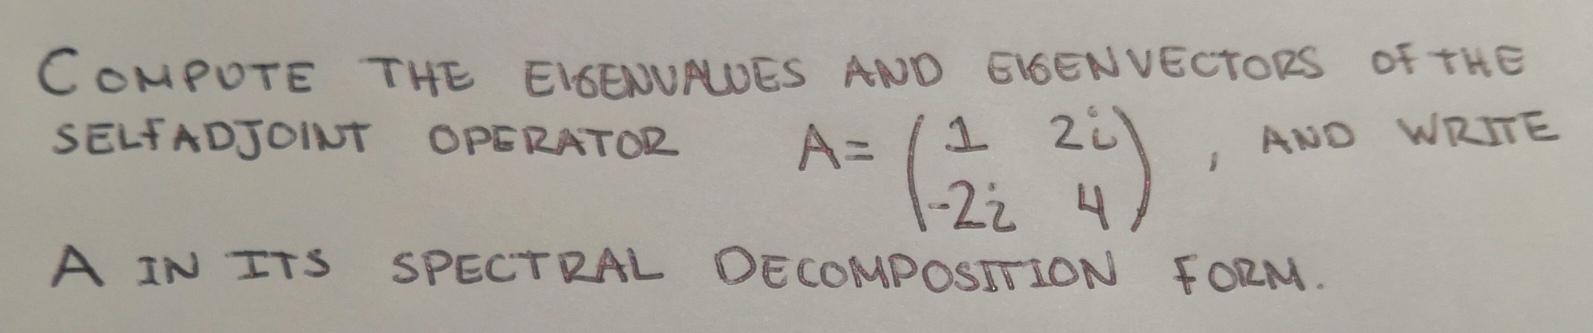 COMPUTE THE EIGENVALUES AND EIGENVECTORS OF THE
SELFADJOINT OPERATOR A = ( 1 2i ; -2i 4 ) , AND WRITE
A IN ITS SPECTRAL DECOMPOSITION FORM.